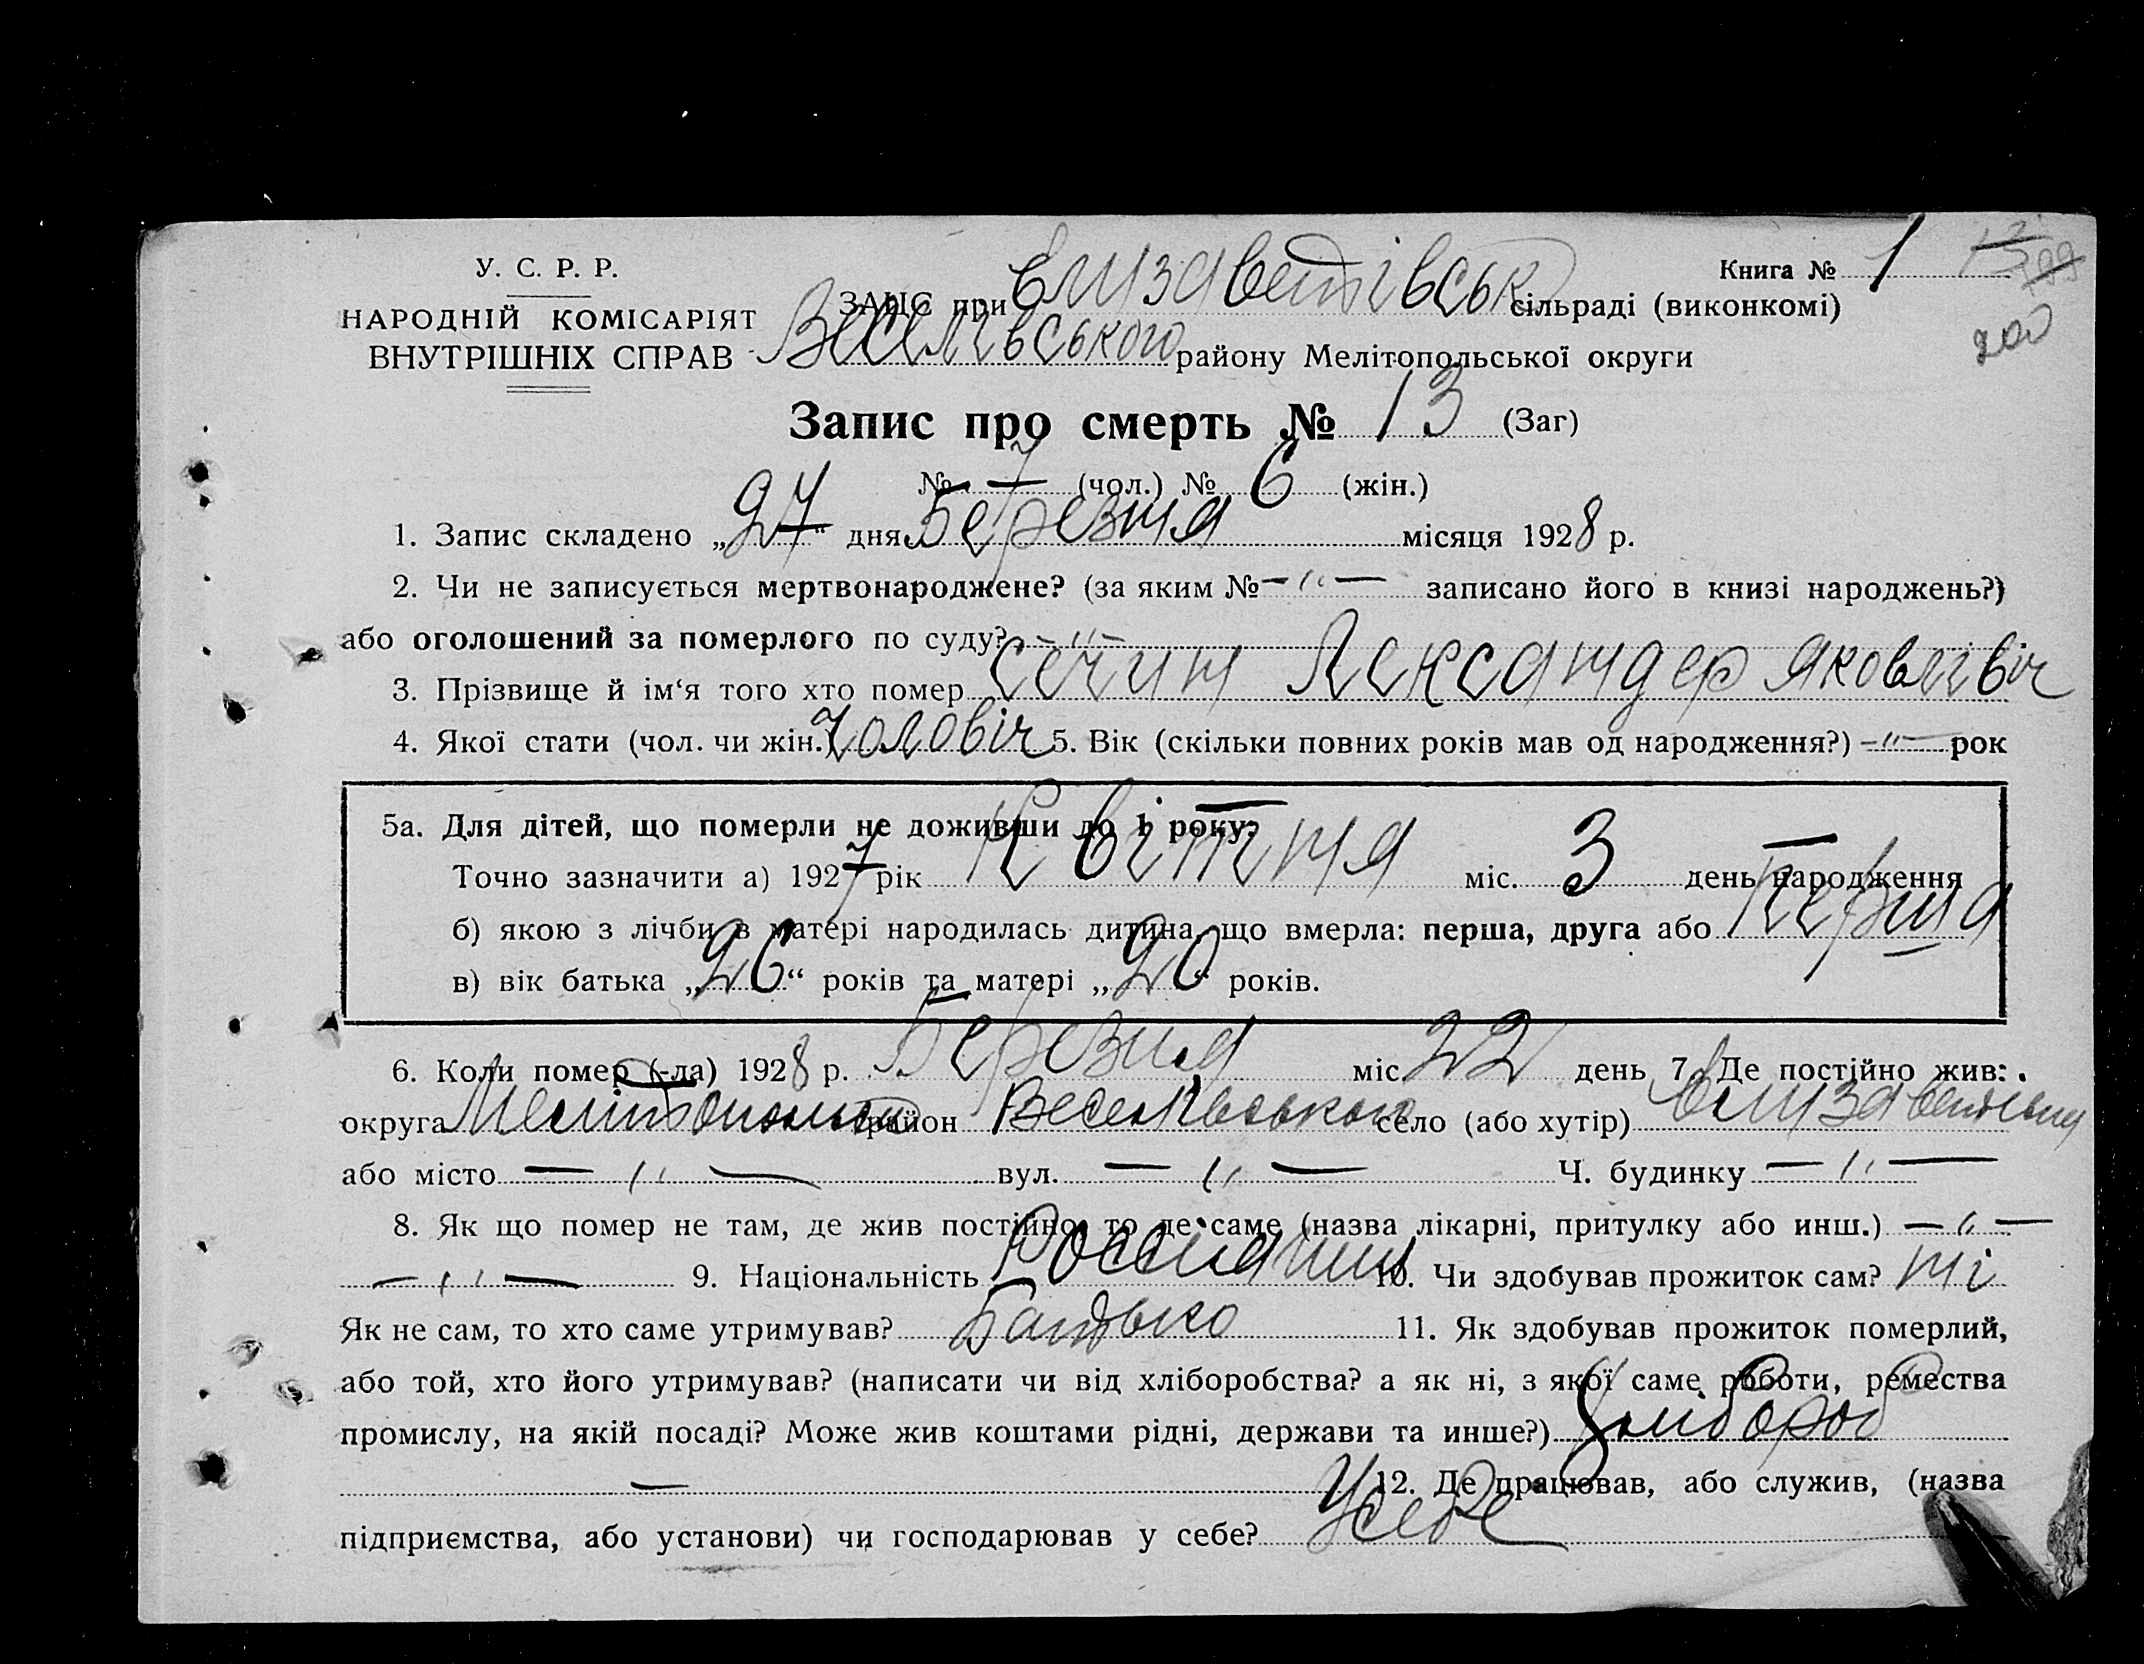 У. С. Р. Р.
НАРОДНІЙ КОМІСАРІЯТ
ВНУТРІШНІХ СПРАВ
Книга № 1
200
ЗАЦС при Єлизаветівськ сільраді (виконкомі)
Веселівського району Мелітопольської округи
Запис про смерть № 13 (Заг)
№ 7 (чол.) № 6 (жін.)
1. Запис складено „27“ дня Березня місяця 1928 р.
2. Чи не записується мертвонароджене? (за яким № — „ — записано його в книзі народжень?)
або оголошений за померлого по суду? — „ —
3. Прізвище й ім‘я того хто помер Сечин Лександер Яковлівіч
4. Якої стати (чол. чи жін.) Чоловіч 5. Вік (скільки повних років мав од народження?) — „ — рок
5а. Для дітей, що померли не доживши до 1 року:
Точно зазначити а) 1927 рік Квітня міс. 3 день народження
б) якою з лічби в матері народилась дитина, що вмерла: перша, друга або Перша
в) вік батька „26“ років та матері „20“ років.
6. Коли помер (-ла) 1928 р. Березня міс 22 день 7. Де постійно жив:
округа район Веселівського село (або хутір)
або місто — „ — вул. — „ — Ч. будинку — „ —
8. Як що помер не там, де жив постійно, то де саме (назва лікарні, притулку або инш.) — „ —
— „ — 9. Національність 10. Чи здобував прожиток сам? ні
Як не сам, то хто саме утримував? Батько 11. Як здобував прожиток померлий,
або той, хто його утримував? (написати чи від хліборобства? а як ні, з якої саме роботи, ремества
промислу, на якій посаді? Може жив коштами рідні, держави та инше?) Хлібороб
— 12. Де працював, або служив, (назва
підприємства, або установи) чи господарював у себе? У себе